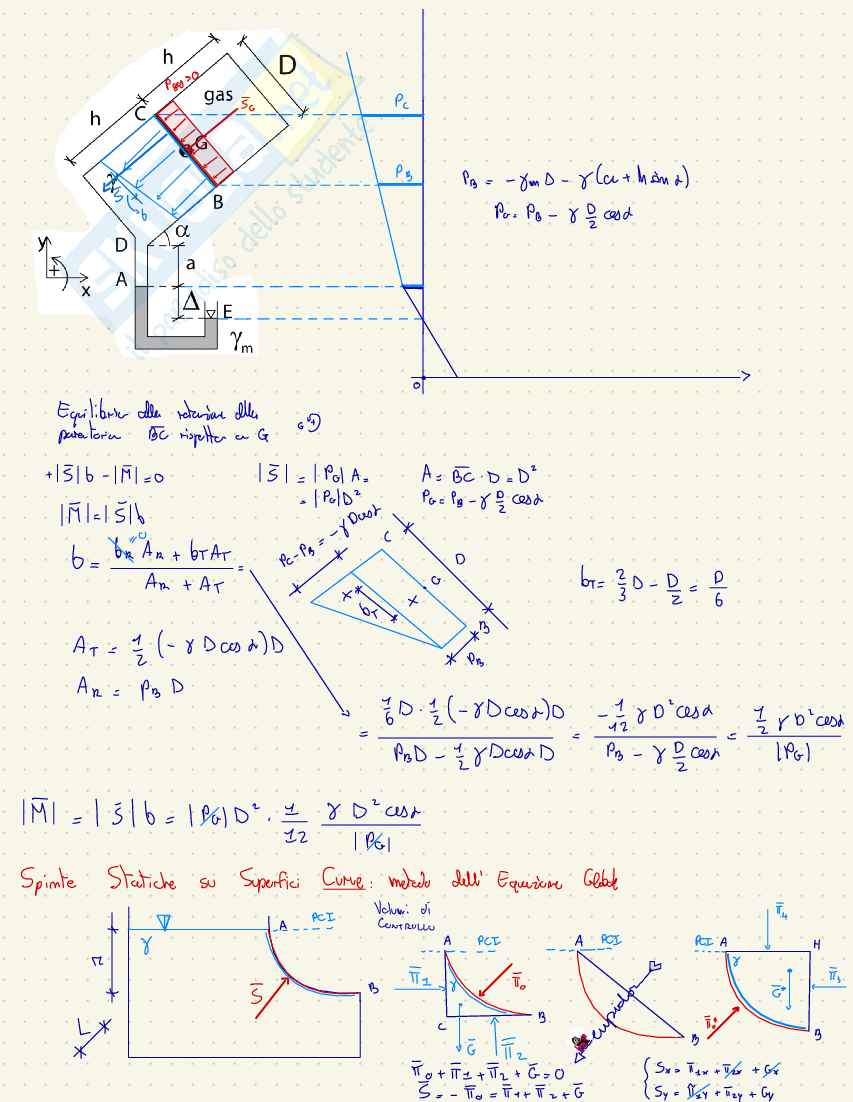 h
D
P_gas>0
gas
S̄_G
C
h
G
B
S̄
b
α
D
y
a
A
x
Δ
E
γ_m
P_C
P_B
0
P_B = -γ_m Δ - γ(a + h sin α)
P_G = P_B - γ D/2 cos α
Equilibrio alla rotazione della
paratoia BC rispetto a G
G +
+|S̄|b - |M̄| = 0
|S̄| = |P_G| A =
= |P_G| D²
A = B̄C̄ · D = D²
P_G = P_B - γ D/2 cos α
|M̄| = |S̄| b
b = (b_R A_R + b_T A_T)/(A_R + A_T) =
=0
P_C - P_B = -γ D cos α
C
D
G
x
x
b_T
B
P_B
b_T = 2/3 D - D/2 = D/6
A_T = 1/2 (-γ D cos α) D
A_R = P_B D
= (1/6 D · 1/2 (-γ D cos α) D)/(P_B D - 1/2 γ D cos α D) = (-1/12 γ D² cos α)/(P_B - γ D/2 cos α) = (1/2 γ D² cos α)/|P_G|
|M̄| = |S̄| b = |P_G| D² · 1/12 (γ D² cos α)/|P_G|
Spinte Statiche su Superfici Curve: metodo dell' Equazione Globale
A
PCI
γ
r
S̄
B
L
Volumi di
CONTROLLO
A
PCI
Π̄_1
Π̄_0
γ
C
B
Ḡ
Π̄_2
A
PCI
stupido
B
Π̄_4
PCI
A
H
γ
Ḡ*
Π̄_3
Π̄_0*
B
Π̄_0 + Π̄_1 + Π̄_2 + Ḡ = 0
S̄ = -Π̄_0 = Π̄_1 + Π̄_2 + Ḡ
{ S_x = Π_1x + Π_2x + G_x
{ S_y = Π_1y + Π_2y + G_y